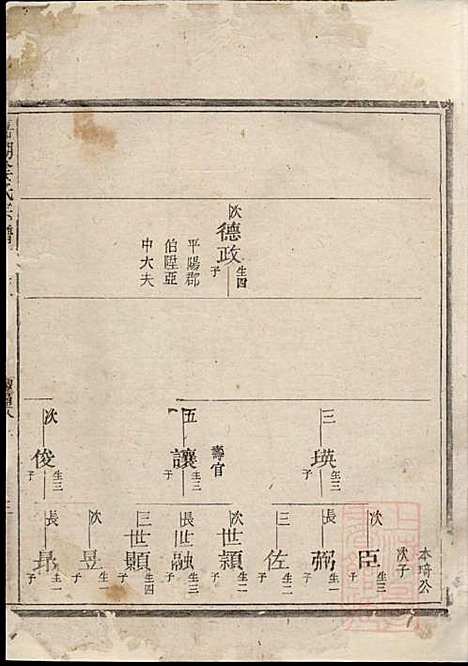 次
德政
生四
子
平陽郡
伯陞亞
中大夫
三
瑛
生三
子
五
讓
生三
子
壽官
次
俊
生三
子
本琦公
次子
次
臣
生三
子
長
弼
生一
子
三
佐
生二
子
次
世頴
生一
子
長
世融
生三
子
三
世顯
生四
子
次
昱
生一
子
長
昻
生一
子